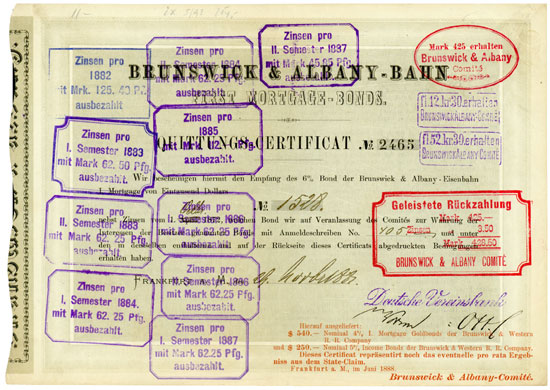 Zinsen pro
1882
mit Mrk. 125. 40 Pfg.
ausbezahlt
Zinsen pro
II. Semester 1884
mit Mark 62.25 Pfg.
ausbezahlt.
Zinsen pro
II. Semester 1887
mit Mark 45.95 Pfg.
ausbezahlt.
Mark 425 erhalten
Brunswick & Albany
Comité.
BRUNSWICK & ALBANY-BAHN
FIRST MORTGAGE-BONDS.
fl.12 kr.30. erhalten
BRUNSWICK ALBANY COMITÉ
fl.52 kr.39. erhalten
BRUNSWICK ALBANY COMITÉ
QUITTUNGS-CERTIFICAT № 2465
Zinsen pro
I. Semester 1883
mit Mark 62.50 Pfg.
ausbezahlt.
Zinsen pro
1885
mit Mark
ausbezahlt.
Wir bescheinigen hiermit den Empfang des 6% Bond der Brunswick & Albany-Eisenbahn
I. Mortgage von Eintausend Dollars
№
nebst Zinsen vom
Bond wir auf Veranlassung des Comités zur
Interessen der
mit Anmeldeschreiben No.
und unter
den in demselben
auf der Rückseite dieses Certificats abgedruckten Bedingungen
erhalten haben.
Zinsen pro
II. Semester 1883
mit Mark 62.25 Pfg.
ausbezahlt.
Zinsen pro
Semester 1886
mit Mark 62.25 Pfg.
ausbezahlt.
Geleistete Rückzahlung
Mark 425.—
Zinsen 3.50
Mark 428.50
BRUNSWICK & ALBANY COMITÉ
Zinsen pro
I. Semester 1884.
mit Mark 62.25 Pfg.
ausbezahlt.
Zinsen pro
Semester 1886
mit Mark 62.25 Pfg.
ausbezahlt.
FRANKFURT A. M.
Zinsen pro
I. Semester 1887
mit Mark 62.25 Pfg.
ausbezahlt.
Deutsche Vereinsbank
Hierauf ausgeliefert:
$ 540.— Nominal 4% I. Mortgage Goldbonds der Brunswick & Western
R. R. Company
und $ 250.— Nominal 5% Income Bonds der Brunswick & Western R. R. Company.
Dieses Certificat repräsentirt noch das eventuelle pro rata Ergeb-
niss aus dem State-Claim.
Frankfurt a. M., im Juni 1888.
Brunswick & Albany-Comité.